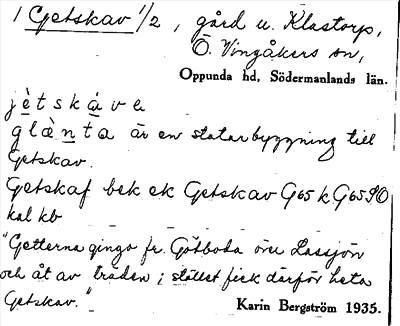 1 Getskav 1/2, gård u. Klastorp,
Ö. Vingåkers sn,
Oppunda hd, Södermanlands län.
jètskáva
glànta är en statarbyggning till
Getskav.
Getskaf bek ek Getskav G65 k G65 SO
kal kb
"Getterna gingo fr. Götboda över Lassjön
och åt av träden; stället fick därför heta
Getskav."
Karin Bergström 1935.